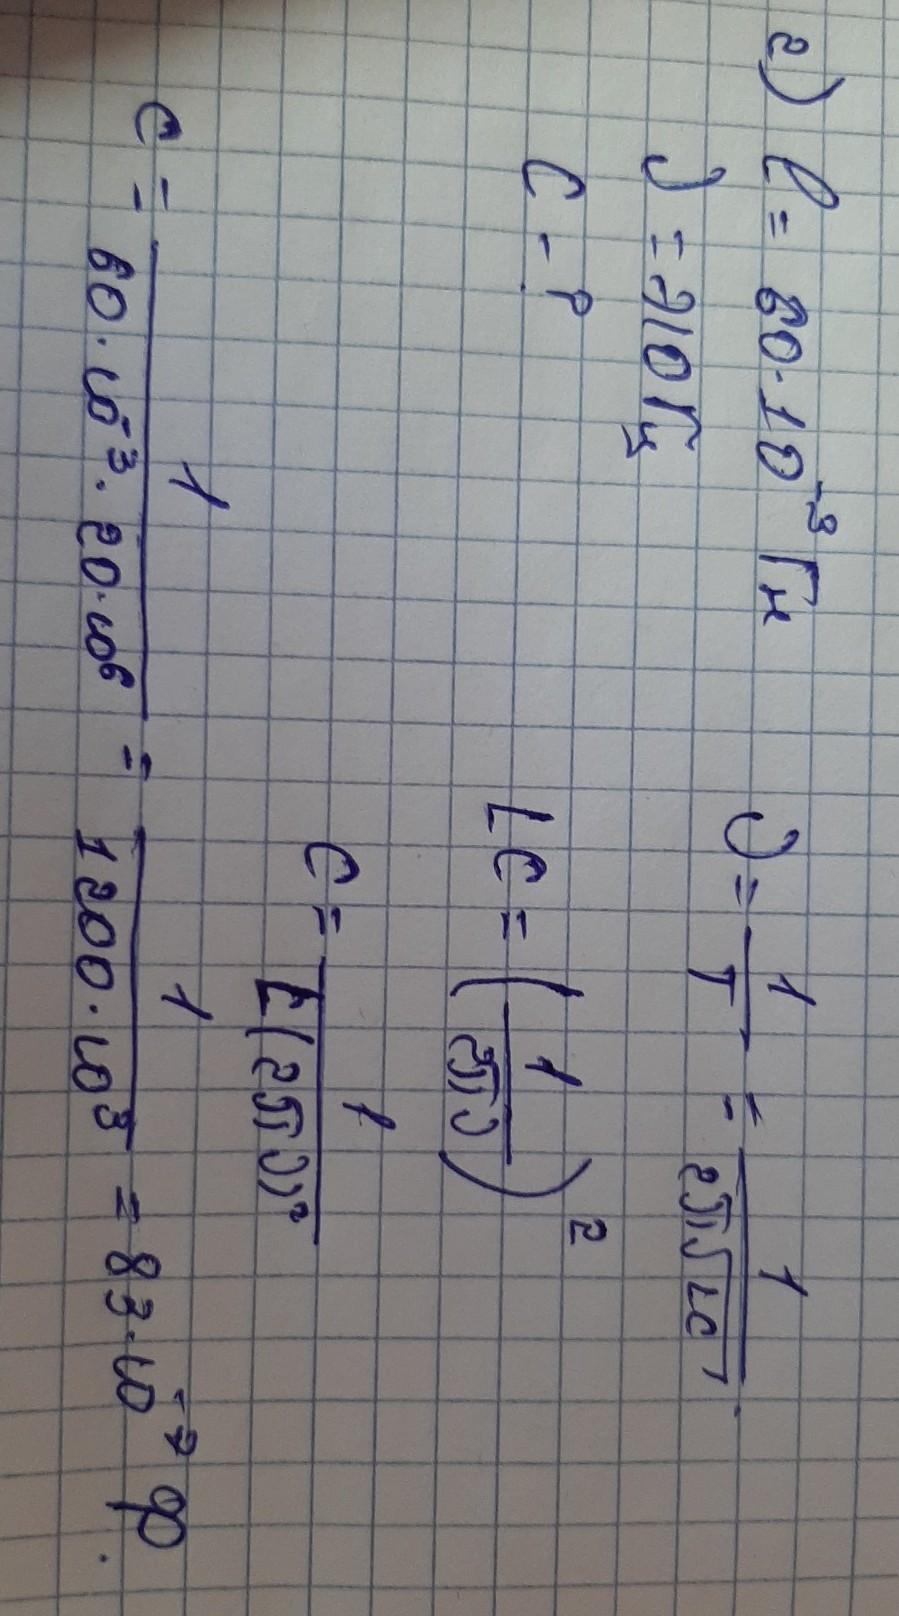 2) L = 60·10⁻³ Гн
ν = 210 Гц
C - ?
ν = 1/T = 1/(2π√LC)
LC = (1/(2πν))²
C = 1/(L(2πν)²)
C = 1/(60·10⁻³·20·10⁶) = 1/(1200·10³) = 83·10⁻⁷ Ф.